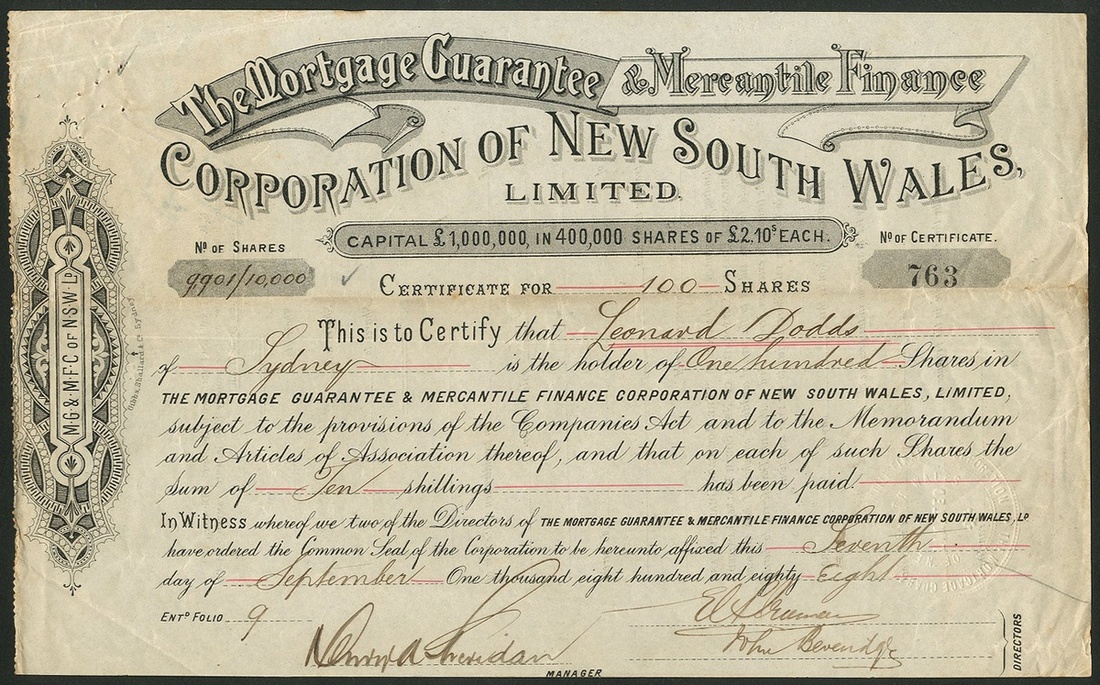 The Mortgage Guarantee & Mercantile Finance
CORPORATION OF NEW SOUTH WALES,
LIMITED.
CAPITAL £1,000,000, IN 400,000 SHARES OF £2.10s EACH.
No OF SHARES
9901/10,000
No OF CERTIFICATE.
763
CERTIFICATE FOR 100 SHARES
This is to Certify that Leonard Dodds
of Sydney is the holder of One hundred Shares in
THE MORTGAGE GUARANTEE & MERCANTILE FINANCE CORPORATION OF NEW SOUTH WALES, LIMITED,
subject to the provisions of the Companies Act and to the Memorandum
and Articles of Association thereof, and that on each of such Shares the
Sum of Ten shillings has been paid.
In Witness whereof we two of the Directors of THE MORTGAGE GUARANTEE & MERCANTILE FINANCE CORPORATION OF NEW SOUTH WALES, LD
have ordered the Common Seal of the Corporation to be hereunto affixed this Seventh
day of September One thousand eight hundred and eighty Eight
ENTD FOLIO 9
John Beveridge
Sheridan
MANAGER
DIRECTORS
M·G·&·M·F·C OF N·S·W· LD
Gibbs, Shallard & Co. Sydney